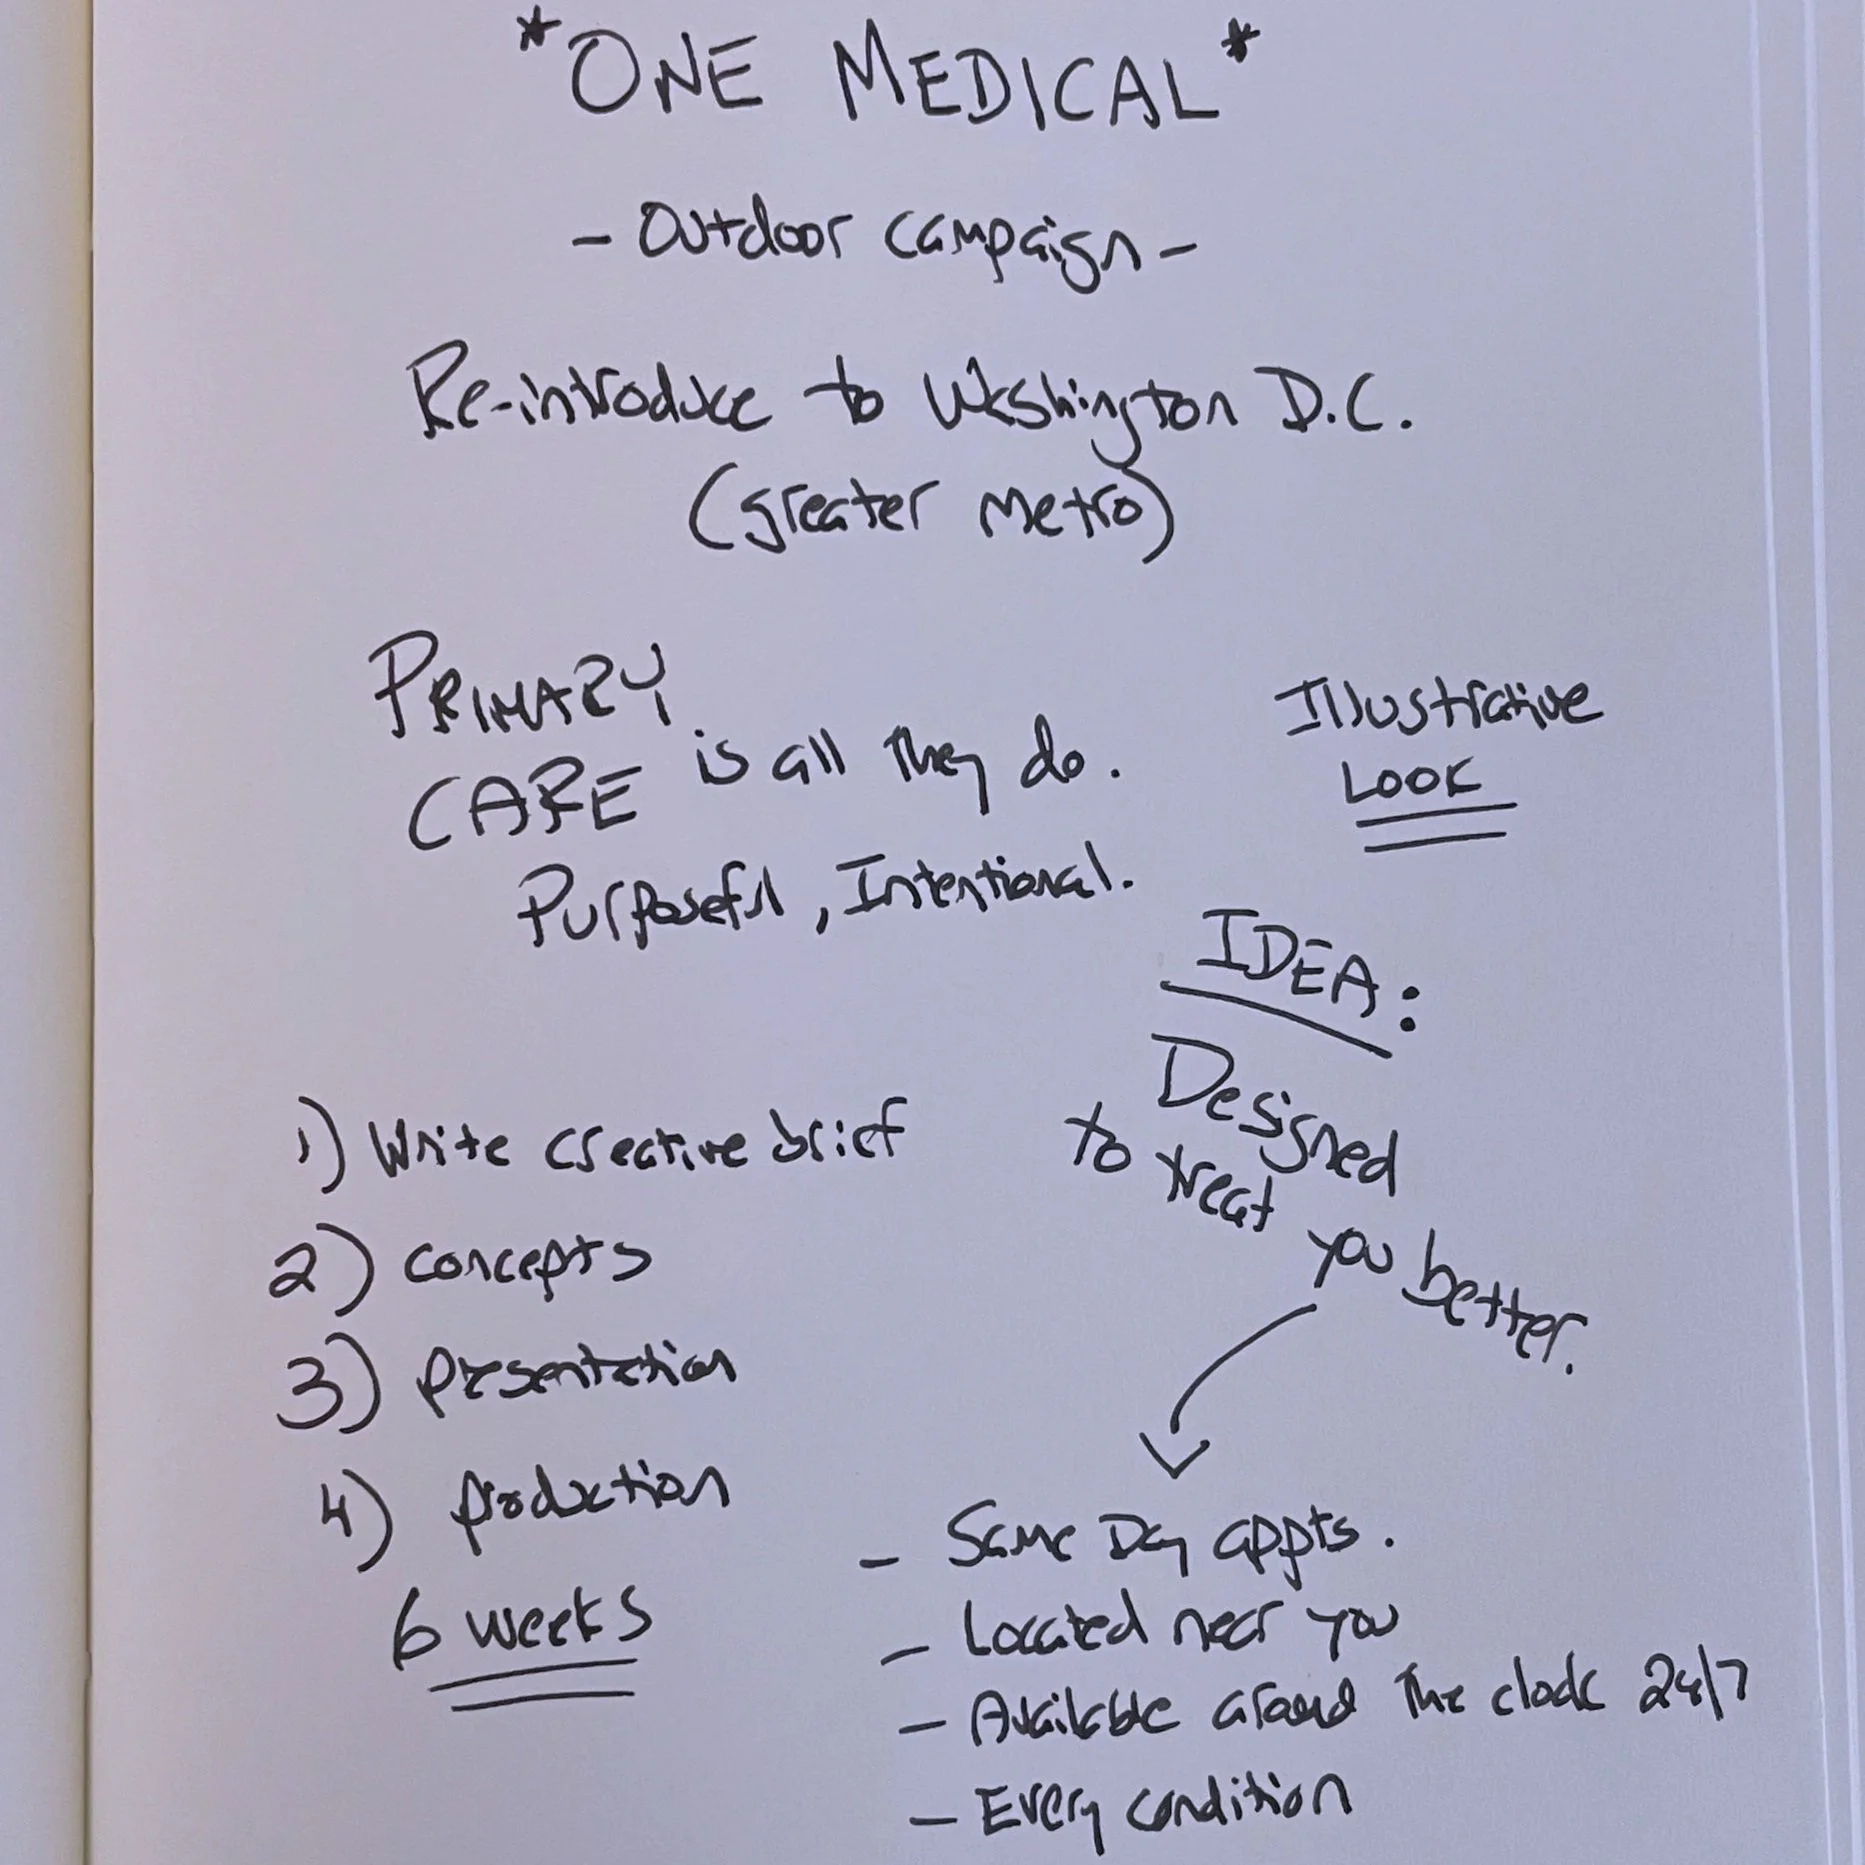 *ONE MEDICAL*
- Outdoor campaign -
Re-introduce to Washington D.C.
(greater metro)
PRIMARY
CARE is all they do.
Purposeful, Intentional.
Illustrative
LOOK
IDEA:
Designed
to treat you better.
1) Write creative brief
2) concepts
3) presentation
4) production
6 weeks
- Same Day appts.
- Located near you
- Available around the clock 24/7
- Every condition